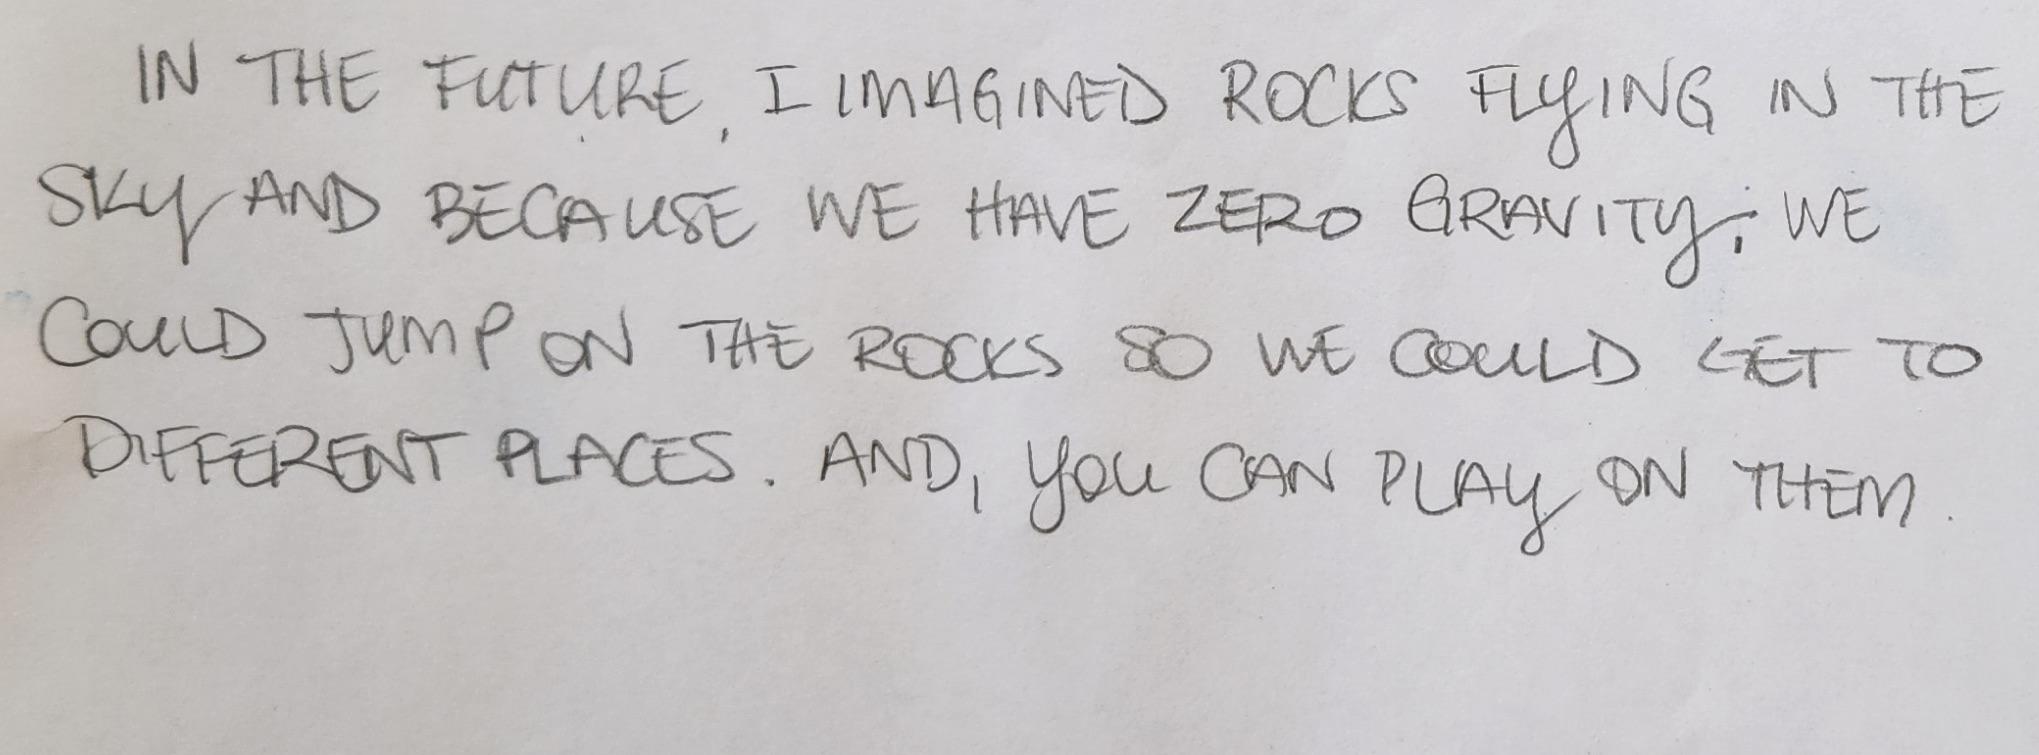 IN THE FUTURE, I IMAGINED ROCKS FLYING IN THE
SKY AND BECAUSE WE HAVE ZERO GRAVITY; WE
COULD JUMP ON THE ROCKS SO WE COULD GET TO
DIFFERENT PLACES. AND, YOU CAN PLAY ON THEM.